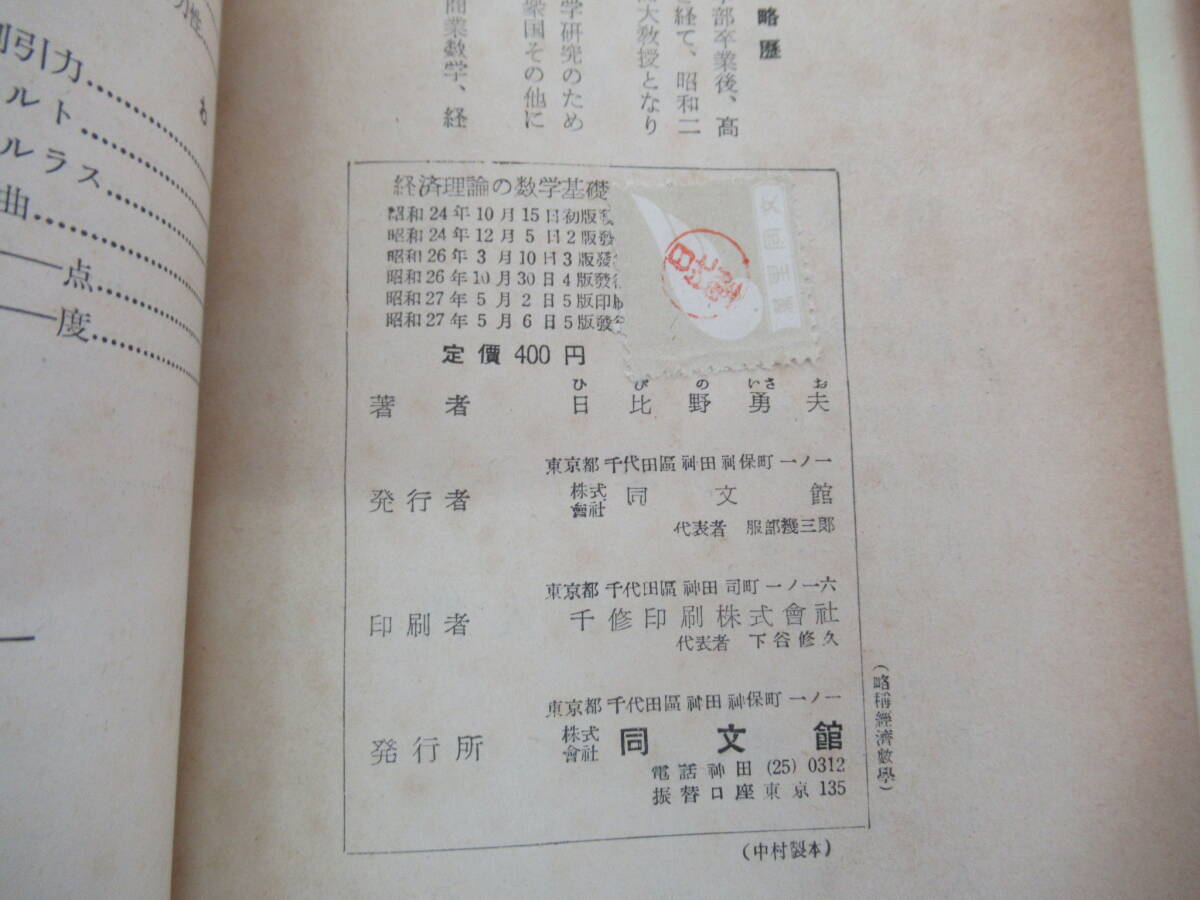 略歴
部卒業後、高
経て、昭和二
大教授となり
学研究のため
衆国その他に
商業数学、経
引力
ルト
ルラス
曲
点
度
経済理論の数学基礎
昭和24年10月15日初版発
昭和24年12月5日2版發
昭和26年3月10日3版發行
昭和26年10月30日4版發行
昭和27年5月2日5版印刷
昭和27年5月6日5版發行
定價 400 円
ひびのいさお
著者 日比野勇夫
東京都千代田區神田神保町一ノ一
発行者 株式會社 同文館
代表者 服部幾三郎
東京都千代田區神田司町一ノ一六
印刷者 千修印刷株式會社
代表者 下谷修久
東京都千代田區神田神保町一ノ一
発行所 株式會社 同文館
電話神田 (25) 0312
振替口座東京 135
(略稱經濟數學)
(中村製本)